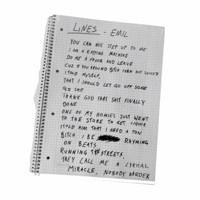 LINES - EMIL
YOU CAN NOT STEP UP TO ME
I'M A RAPPING MACHINE
DO ME A FAVOR AND LEAVE
CUZ IF YOU AROUND BITCH I GON GET
I TOLD MYSELF
THAT I SHOULD LET GO OFF SOME
OLD SHIT
THANK GOD THAT SHIT FINALLY
DONE
ONE OF MY HOMIES JUST WENT
TO THE STORE TO GET LIQUOR
I TOLD HIM THAT I NEED A TON
BITCH I BE RHYMING
ON BEATS
RUNNING THE STREETS
THEY CALL ME A LYRICAL
MIRACLE, NOBODY HARDER